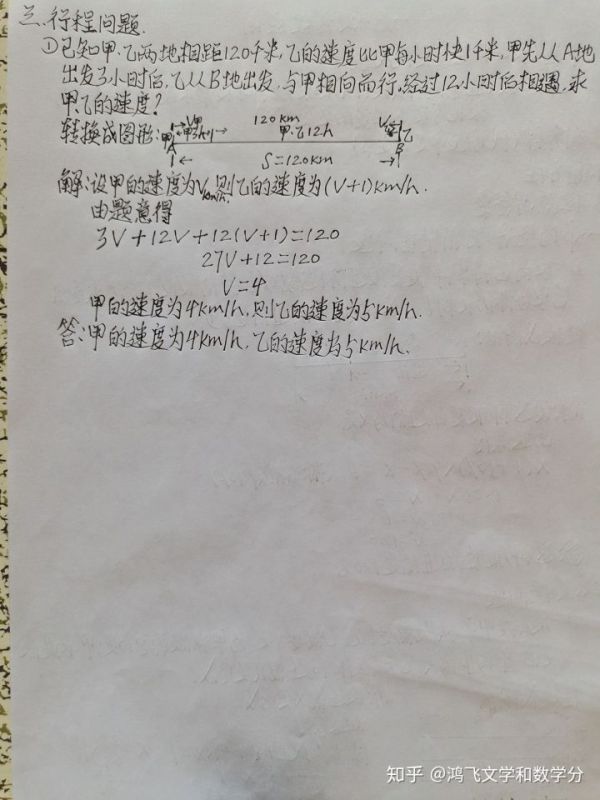 三.行程问题.
①已知甲.乙两地相距120千米,乙的速度比甲每小时快1千米,甲先从A地
出发了3小时后,乙从B地出发,与甲相向而行,经过12小时后相遇,求
甲.乙的速度?
120km
转换成图形:甲 V甲 甲3h 甲.乙12h V乙 乙
A B
S=120km
解:设甲的速度为Vkm/h.则乙的速度为(V+1)km/h.
由题意得
3V+12V+12(V+1)=120
27V+12=120
V=4
甲的速度为4km/h,则乙的速度为5km/h.
答:甲的速度为4km/h,乙的速度为5km/h.
知乎 @鸿飞文学和数学分